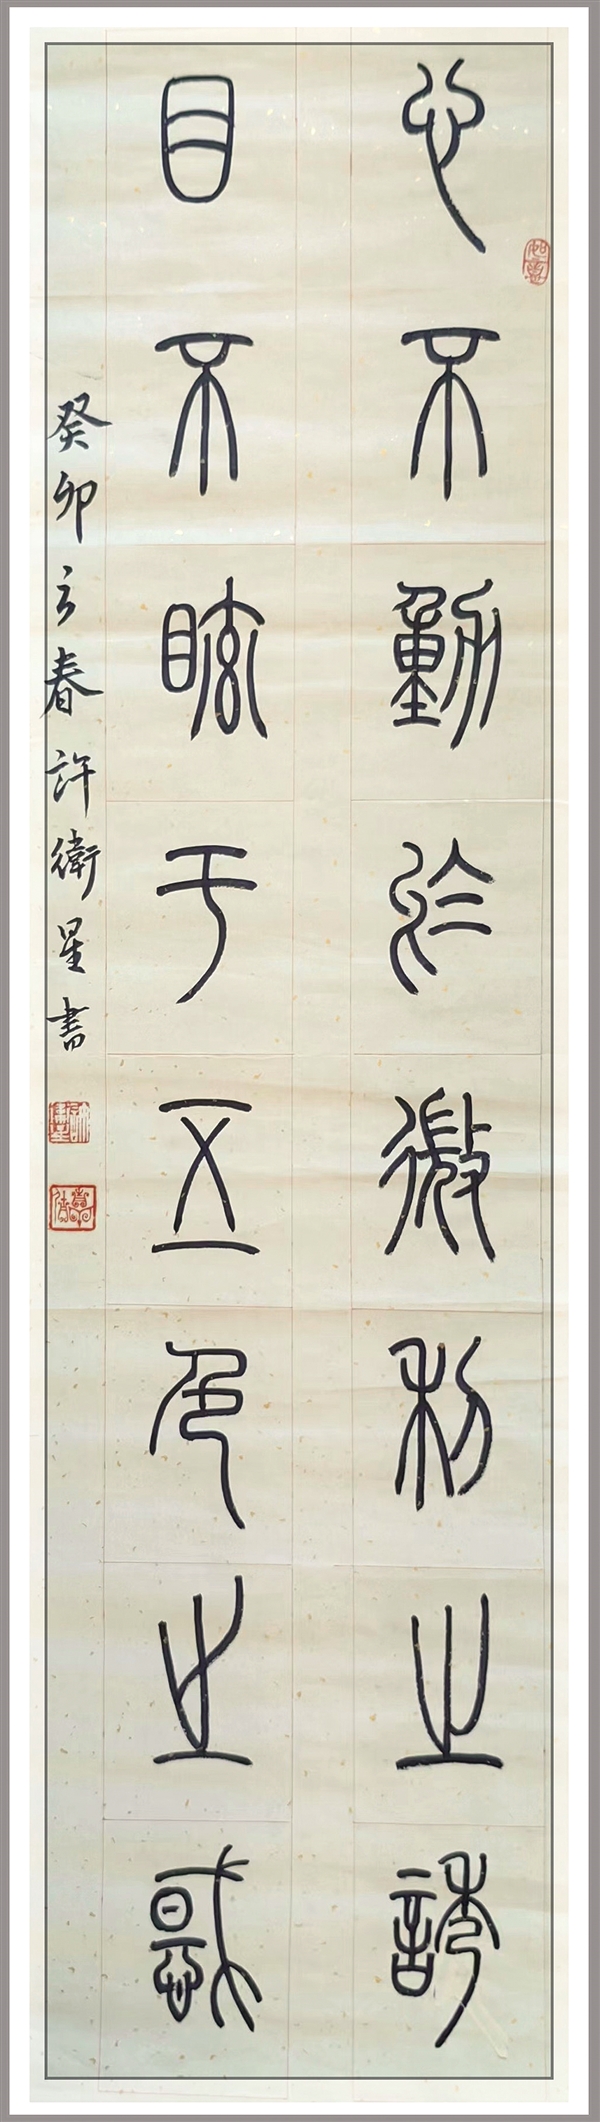 心不動於微利之誘
目不眩于五色之惑
癸卯立春許衛星書